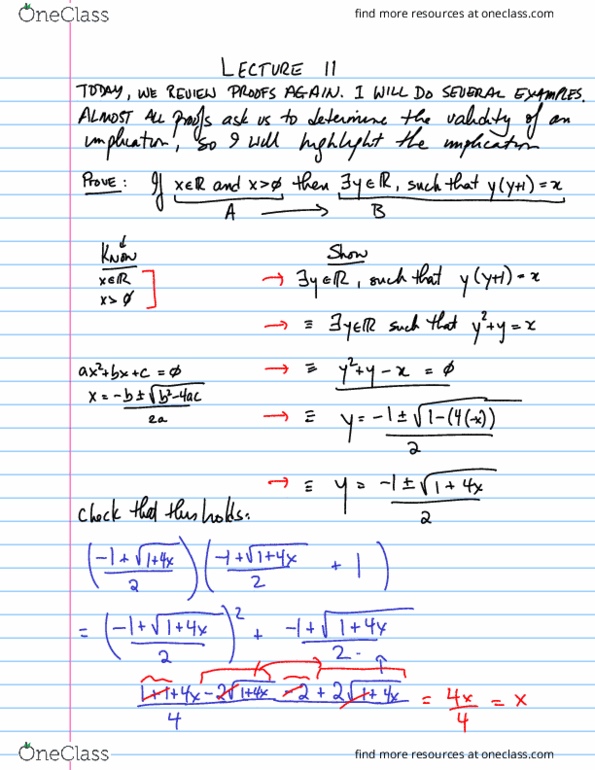 OneClass find more resources at oneclass.com
LECTURE 11
TODAY, WE REVIEW PROOFS AGAIN. I WILL DO SEVERAL EXAMPLES.
ALMOST ALL proofs ask us to determine the validity of an
implication, so I will highlight the implication
PROVE: If x∈ℝ and x>∅ then ∃y∈ℝ, such that y(y+1)=x
A → B
KNOW Show
x∈ℝ → ∃y∈ℝ, such that y(y+1)=x
x>∅
→ ≡ ∃y∈ℝ such that y²+y=x
ax²+bx+c=∅ → ≡ y²+y-x=∅
x=-b±√b²-4ac / 2a → ≡ y=-1±√1-(4(-x)) / 2
→ ≡ y=-1±√1+4x / 2
check that this holds:
(-1+√1+4x / 2)(-1+√1+4x / 2 + 1)
= (-1+√1+4x / 2)² + -1+√1+4x / 2
1+1+4x-2√1+4x -2+2√1+4x / 4 = 4x / 4 = x
OneClass find more resources at oneclass.com